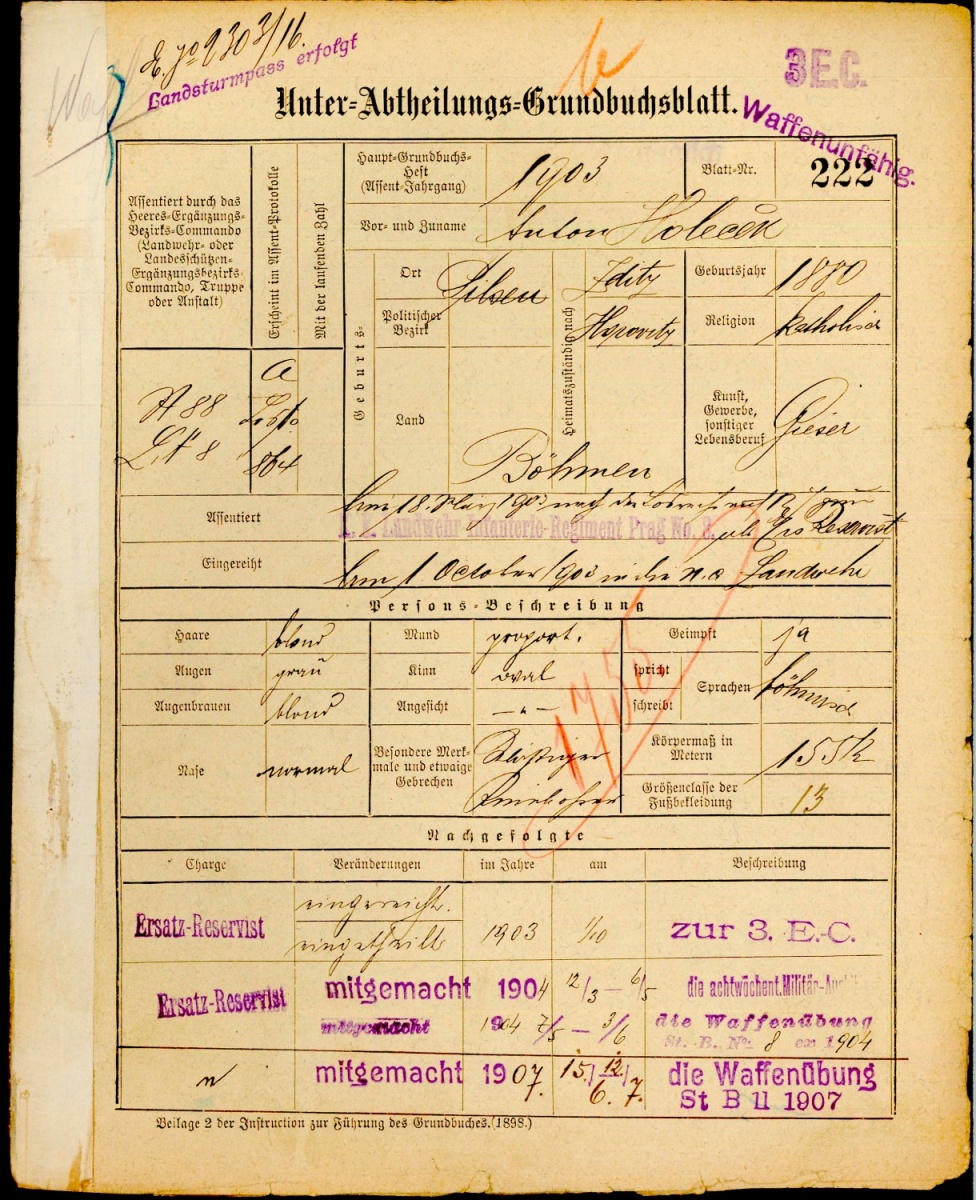 E. No 2303/16.
Landsturmpass erfolgt
3 E.C.
Unter-Abtheilungs-Grundbuchsblatt.
Waffenunfähig.
Assentiert durch das Heeres-Ergänzungs-Bezirks-Commando (Landwehr- oder Landesschützen-Ergänzungsbezirks-Commando, Truppe oder Anstalt)
Erscheint im Assent-Protokolle
Mit der laufenden Zahl
Haupt-Grundbuchs-Heft (Assent-Jahrgang)
1903
Blatt-Nr.
222
Vor- und Zuname
Anton Holeček
Geburts-
Ort
Pilsen
Heimatszuständig nach
Zditz
Geburtsjahr
1880
Politischer Bezirk
Hořovitz
Religion
katholisch
Land
Böhmen
Kunst, Gewerbe, sonstiger Lebensberuf
Gieser
A
864
Assentiert
Am 18. März 1903 nach
K. k. Landwehr-Infanterie-Regiment Prag No. 8.
als Ers. Reservist
Eingereiht
Am 1. October 1903 in die n. a. Landwehr
Persons-Beschreibung
Haare
blond
Mund
proport.
Geimpft
ja
Augen
grau
Kinn
oval
spricht
Sprachen
böhmisch
Augenbrauen
blond
Angesicht
— " —
schreibt
Nase
normal
Besondere Merkmale und etwaige Gebrechen
Körpermaß in Metern
Größenclasse der Fußbekleidung
13
Nachgefolgte
Charge
Veränderungen
im Jahre
am
Beschreibung
Ersatz-Reservist
eingereicht.
eingetheilt
1903
1/10
zur 3. E.-C.
Ersatz-Reservist
mitgemacht
1904
12/3 — 6/5
die achtwöchent. Militär-
mitgemacht
1904
7/5 — 3/6
die Waffenübung
St. B. No: 8 ex 1904
"
mitgemacht
1907.
15./6. 12/7.
die Waffenübung
St B 11 1907
Beilage 2 der Instruction zur Führung des Grundbuches. (1898.)